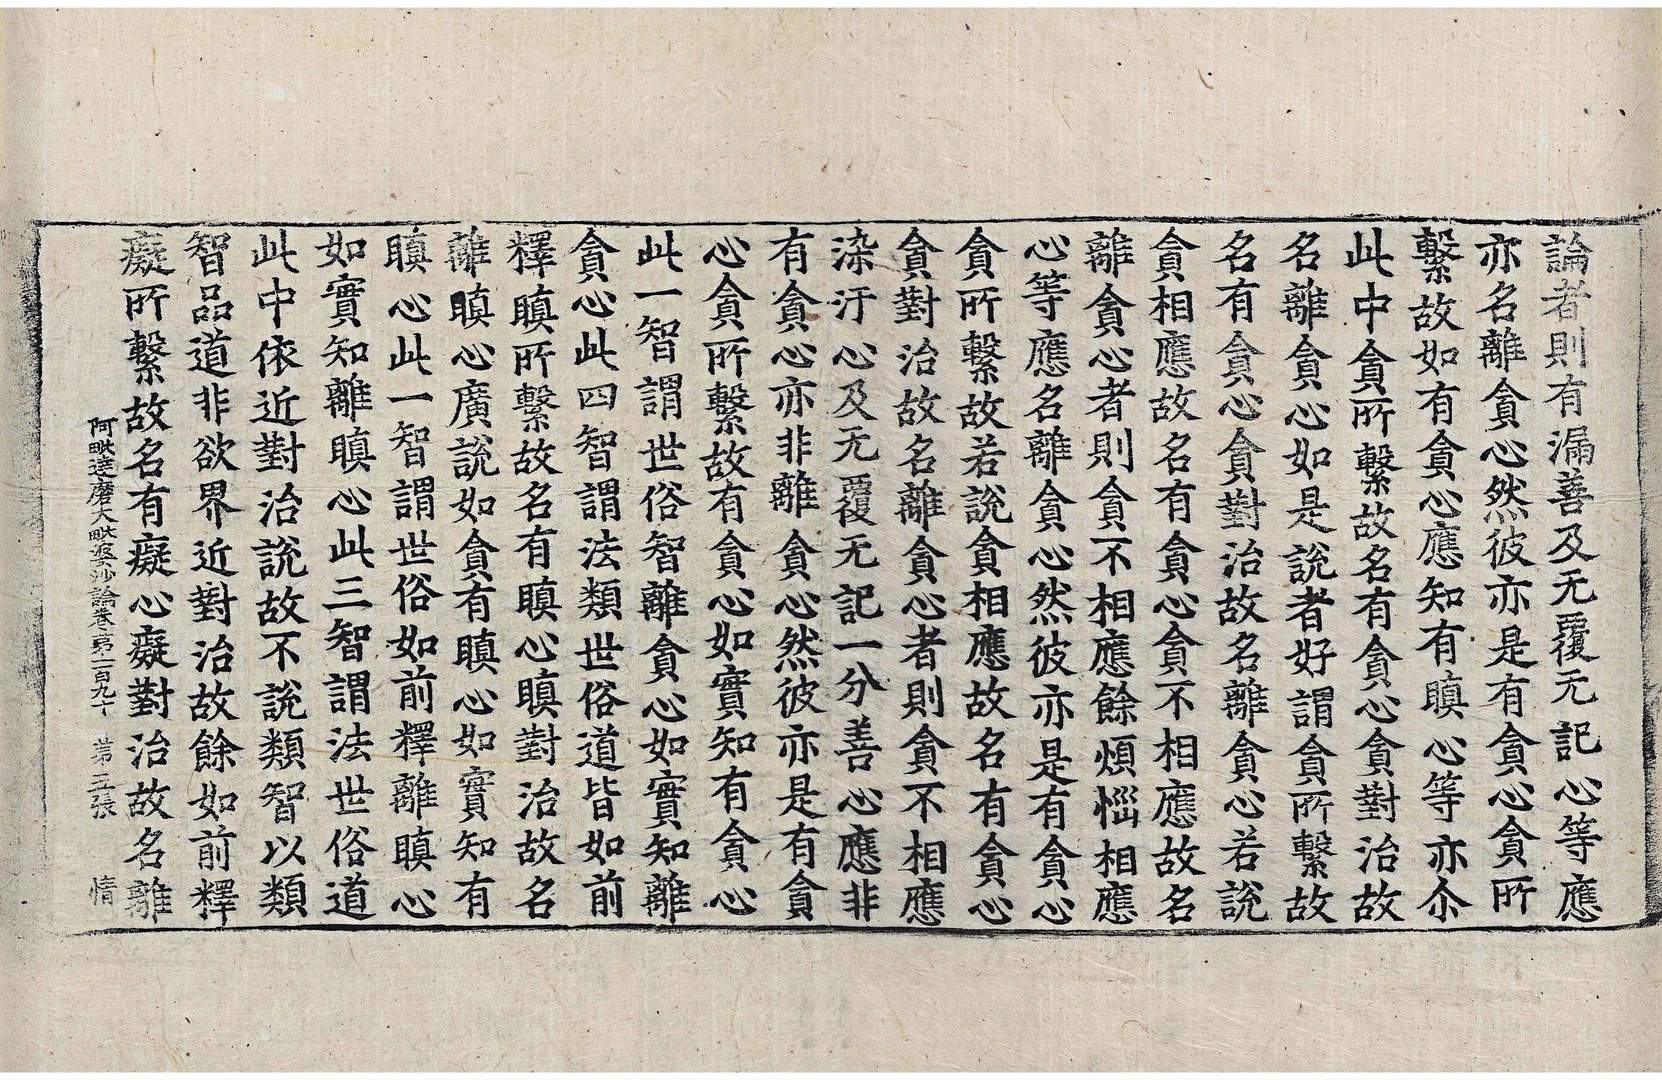 論者則有漏善及无覆无記心等應
亦名離貪心然彼亦是有貪心貪所
繫故如有貪心應知有瞋心等亦尒
此中貪所繫故名有貪心貪對治故
名離貪心如是說者好謂貪所繫故
名有貪心貪對治故名離貪心若說
貪相應故名有貪心貪不相應故名
離貪心者則貪不相應餘煩惱相應
心等應名離貪心然彼亦是有貪心
貪所繫故若說貪相應故名有貪心
貪對治故名離貪心者則貪不相應
染汙心及无覆无記一分善心應非
有貪心亦非離貪心然彼亦是有貪
心貪所繫故有貪心如實知有貪心
此一智謂世俗智離貪心如實知離
貪心此四智謂法類世俗道皆如前
釋瞋所繫故名有瞋心瞋對治故名
離瞋心廣說如貪有瞋心如實知有
瞋心此一智謂世俗如前釋離瞋心
如實知離瞋心此三智謂法世俗道
此中依近對治說故不說類智以類
智品道非欲界近對治故餘如前釋
癡所繫故名有癡心癡對治故名離
阿毗達磨大毗婆沙論卷第一百九十 第五張 情